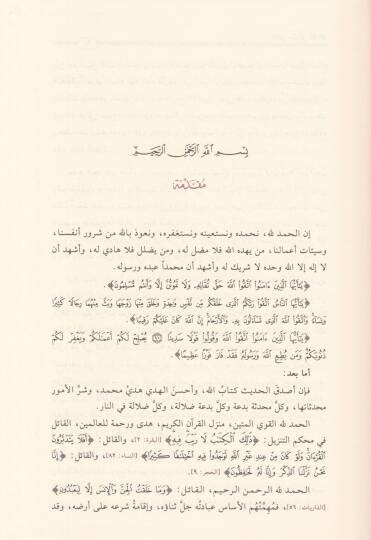 بِسْمِ اللَّهِ الرَّحْمَٰنِ الرَّحِيمِ
مُقدِّمَة
إن الحمد لله، نحمده ونستعينه ونستغفره، ونعوذ بالله من شرور أنفسنا،
وسيئات أعمالنا، من يهده الله فلا مضل له، ومن يضلل فلا هادي له، وأشهد أن
لا إله إلا الله وحده لا شريك له وأشهد أن محمداً عبده ورسوله.
﴿يَٰٓأَيُّهَا ٱلَّذِينَ ءَامَنُوا۟ ٱتَّقُوا۟ ٱللَّهَ حَقَّ تُقَاتِهِۦ وَلَا تَمُوتُنَّ إِلَّا وَأَنتُم مُّسْلِمُونَ﴾.
﴿يَٰٓأَيُّهَا ٱلنَّاسُ ٱتَّقُوا۟ رَبَّكُمُ ٱلَّذِى خَلَقَكُم مِّن نَّفْسٍ وَٰحِدَةٍ وَخَلَقَ مِنْهَا زَوْجَهَا وَبَثَّ مِنْهُمَا رِجَالًا كَثِيرًا
وَنِسَآءً وَٱتَّقُوا۟ ٱللَّهَ ٱلَّذِى تَسَآءَلُونَ بِهِۦ وَٱلْأَرْحَامَ إِنَّ ٱللَّهَ كَانَ عَلَيْكُمْ رَقِيبًا﴾.
﴿يَٰٓأَيُّهَا ٱلَّذِينَ ءَامَنُوا۟ ٱتَّقُوا۟ ٱللَّهَ وَقُولُوا۟ قَوْلًا سَدِيدًا ۝ يُصْلِحْ لَكُمْ أَعْمَٰلَكُمْ وَيَغْفِرْ لَكُمْ
ذُنُوبَكُمْ وَمَن يُطِعِ ٱللَّهَ وَرَسُولَهُۥ فَقَدْ فَازَ فَوْزًا عَظِيمًا﴾.
أما بعد:
فإن أصدقَ الحديث كتابُ الله، وأحسنَ الهدي هديُ محمد، وشرَّ الأمور
محدثاتها، وكلَّ محدثة بدعة وكلَّ بدعة ضلالة، وكلَّ ضلالة في النار.
الحمد لله القوي المتين، منزل القرآن الكريم، هدى ورحمة للعالمين، القائل
في محكم التنزيل: ﴿ذَٰلِكَ ٱلْكِتَٰبُ لَا رَيْبَ فِيهِ﴾ [البقرة: ٢]، والقائل: ﴿أَفَلَا يَتَدَبَّرُونَ
ٱلْقُرْءَانَ وَلَوْ كَانَ مِنْ عِندِ غَيْرِ ٱللَّهِ لَوَجَدُوا۟ فِيهِ ٱخْتِلَٰفًا كَثِيرًا﴾ [النساء: ٨٢]، والقائل: ﴿إِنَّا
نَحْنُ نَزَّلْنَا ٱلذِّكْرَ وَإِنَّا لَهُۥ لَحَٰفِظُونَ﴾ [الحجر: ٩].
الحمد لله الرحمن الرحيم، القائل: ﴿وَمَا خَلَقْتُ ٱلْجِنَّ وَٱلْإِنسَ إِلَّا لِيَعْبُدُونِ﴾
[الذاريات: ٥٦]، فمُهِمَّتُهُم الأساس عبادتُه جلَّ ثناؤه، وإقامةُ شرعه على أرضه، وقد